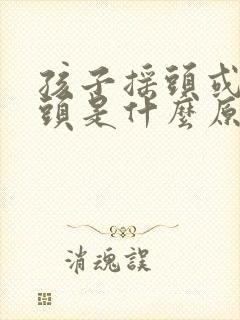 孩子搖頭或
頭是什麼原
消魂誤